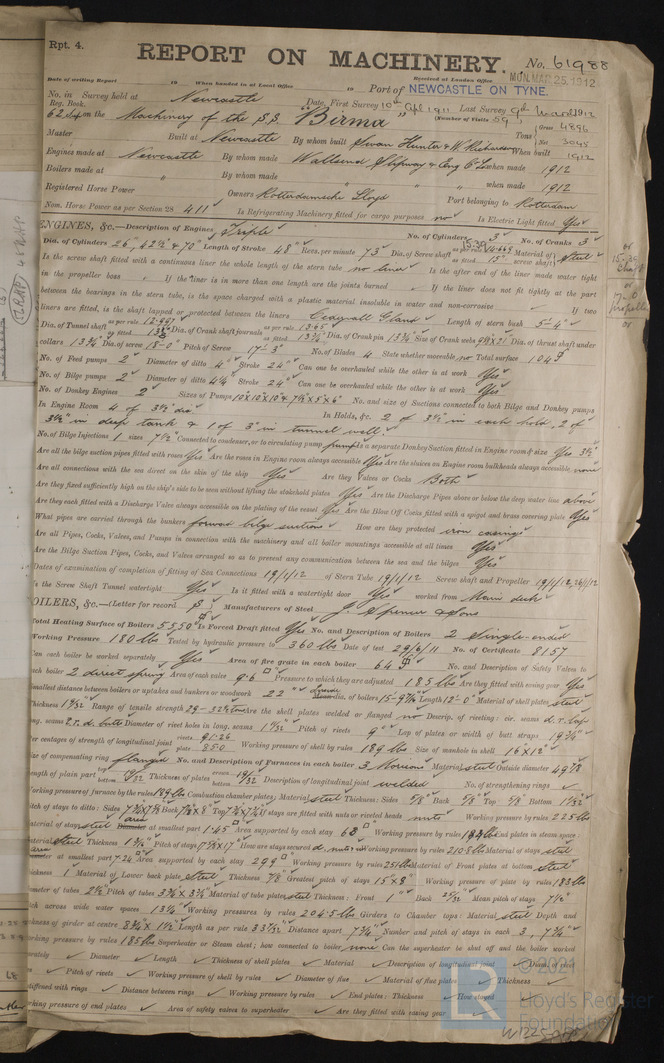 Rpt. 4.
REPORT ON MACHINERY. No. 61988
Date of writing Report 19 When handed in at Local Office 19 Received at London Office MON. MAR. 25. 1912
Port of NEWCASTLE ON TYNE.
No. in Survey held at Newcastle Date, First Survey 10th Apl 1911 Last Survey 9th March 1912
Reg. Book. (Number of Visits 59)
62 Sup on the Machinery of the S.S. "Birma" Tons { Gross 4896 Net 3045
Master Built at Newcastle By whom built Swan Hunter & W. Richardson When built 1912
Engines made at Newcastle By whom made Wallsend Slipway & Eng Co Ld when made 1912
Boilers made at " By whom made " when made 1912
Registered Horse Power Owners Rotterdamsche Lloyd Port belonging to Rotterdam
Nom. Horse Power as per Section 28 411 Is Refrigerating Machinery fitted for cargo purposes no Is Electric Light fitted Yes
ENGINES, &c.—Description of Engines Triple No. of Cylinders 3 No. of Cranks 3
Dia. of Cylinders 26, 42½ & 70" Length of Stroke 48" Revs. per minute 73 Dia. of Screw shaft as fitted 15" Material of screw shaft Steel
Is the screw shaft fitted with a continuous liner the whole length of the stern tube no liner Is the after end of the liner made water tight
in the propeller boss If the liner is in more than one length are the joints burned If the liner does not fit tightly at the part
between the bearings in the stern tube, is the space charged with a plastic material insoluble in water and non-corrosive If two
liners are fitted, is the shaft lapped or protected between the liners Gland Length of stern bush 5'-4"
Dia. of Tunnel shaft as per rule as fitted Dia. of Crank shaft journals as per rule 13.65 as fitted 13¾" Dia. of Crank pin 13¾" Size of Crank webs Dia. of thrust shaft under
collars 13¾" Dia. of screw 18'-0" Pitch of Screw 17'-3" No. of Blades 4 State whether moveable no Total surface 104
No. of Feed pumps 2 Diameter of ditto 4" Stroke 24" Can one be overhauled while the other is at work Yes
No. of Bilge pumps 2 Diameter of ditto 4¼" Stroke 24" Can one be overhauled while the other is at work Yes
No. of Donkey Engines 2 Sizes of Pumps 10"x10"x10" & 7½"x5"x6" No. and size of Suctions connected to both Bilge and Donkey pumps
In Engine Room 4 of 3½" dia In Holds, &c. 2 of 3½" in each hold. 2 of
3½" in deep tank & 1 of 3" in tunnel well.
No. of Bilge Injections 1 sizes 7½" Connected to condenser, or to circulating pump pump Is a separate Donkey Suction fitted in Engine room & size Yes 3½"
Are all the bilge suction pipes fitted with roses Yes Are the roses in Engine room always accessible Yes Are the sluices on Engine room bulkheads always accessible none
Are all connections with the sea direct on the skin of the ship Yes Are they Valves or Cocks Both
Are they fixed sufficiently high on the ship's side to be seen without lifting the stokehold plates Yes Are the Discharge Pipes above or below the deep water line above
Are they each fitted with a Discharge Valve always accessible on the plating of the vessel Yes Are the Blow Off Cocks fitted with a spigot and brass covering plate Yes
What pipes are carried through the bunkers forward bilge suctions How are they protected iron casings
Are all Pipes, Cocks, Valves, and Pumps in connection with the machinery and all boiler mountings accessible at all times Yes
Are the Bilge Suction Pipes, Cocks, and Valves arranged so as to prevent any communication between the sea and the bilges Yes
Dates of examination of completion of fitting of Sea Connections 19/1/12 of Stern Tube 19/1/12 Screw shaft and Propeller 19/1/12, 24/1/12
Is the Screw Shaft Tunnel watertight Yes Is it fitted with a watertight door Yes worked from Main deck
BOILERS, &c.—(Letter for record S) Manufacturers of Steel J. Spencer & Sons
Total Heating Surface of Boilers 5550 Is Forced Draft fitted Yes No. and Description of Boilers 2 Single-ended
Working Pressure 180 lbs Tested by hydraulic pressure to 360 lbs Date of test 29/6/11 No. of Certificate 8157
Can each boiler be worked separately Yes Area of fire grate in each boiler 64 No. and Description of Safety Valves to
each boiler 2 direct spring Area of each valve 9.6 Pressure to which they are adjusted 185 lbs Are they fitted with easing gear Yes
Smallest distance between boilers or uptakes and bunkers or woodwork 22" inside dia. of boilers 15'-9 Length 12'-0" Material of shell plates steel
Thickness Range of tensile strength 29-32½ tons Are the shell plates welded or flanged no Descrip. of riveting: cir. seams d.r. lap
long. seams t.r. d. butts Diameter of rivet holes in long. seams 1 Pitch of rivets 9" Lap of plates or width of butt straps 19¾"
Per centages of strength of longitudinal joint rivets 91.26 plate 85.0 Working pressure of shell by rules 189 lbs Size of manhole in shell 16" x 12"
Size of compensating ring flanged No. and Description of Furnaces in each boiler 3 Morisons Material steel Outside diameter 49⅞
Length of plain part Thickness of plates Description of longitudinal joint welded No. of strengthening rings
Working pressure of furnace by the rules 189 lbs Combustion chamber plates: Material steel Thickness: Sides ⅝" Back ⅝" Top ⅝" Bottom
Pitch of stays to ditto: Sides Back Top If stays are fitted with nuts or riveted heads nuts Working pressure by rules 225 lbs
Material of stays steel area at smallest part 1.45 Area supported by each stay 68 Working pressure by rules End plates in steam space
Material steel Thickness Pitch of stays How are stays secured d. nuts Working pressure by rules 210.8 lbs Material of stays steel
area at smallest part 7.24 Area supported by each stay 299 Working pressure by rules 251 lbs Material of Front plates at bottom steel
Thickness 1" Material of Lower back plate steel Thickness ⅞ Greatest pitch of stays 15" x 8" Working pressure of plate by rules 183 lbs
Diameter of tubes 2½" Pitch of tubes 3¾ x 3¾" Material of tube plates steel Thickness: Front 1" Back Mean pitch of stays 7½"
Pitch across wide water spaces 13¼" Working pressures by rules 204.5 lbs Girders to Chamber tops: Material steel Depth and
thickness of girder at centre 8¾ x 1½ Length as per rule Distance apart 7¾" Number and pitch of stays in each 3, 7¾"
Working pressure by rules 185 lbs Superheater or Steam chest; how connected to boiler none Can the superheater be shut off and the boiler worked
separately Diameter Length Thickness of shell plates Material Description of longitudinal joint Diam. of rivet
Pitch of rivets Working pressure of shell by rules Diameter of flue Material of flue plates Thickness
stiffened with rings Distance between rings Working pressure by rules End plates: Thickness How stayed
Working pressure of end plates Area of safety valves to superheater Are they fitted with easing gear
© 2021
Lloyd's Register
Foundation